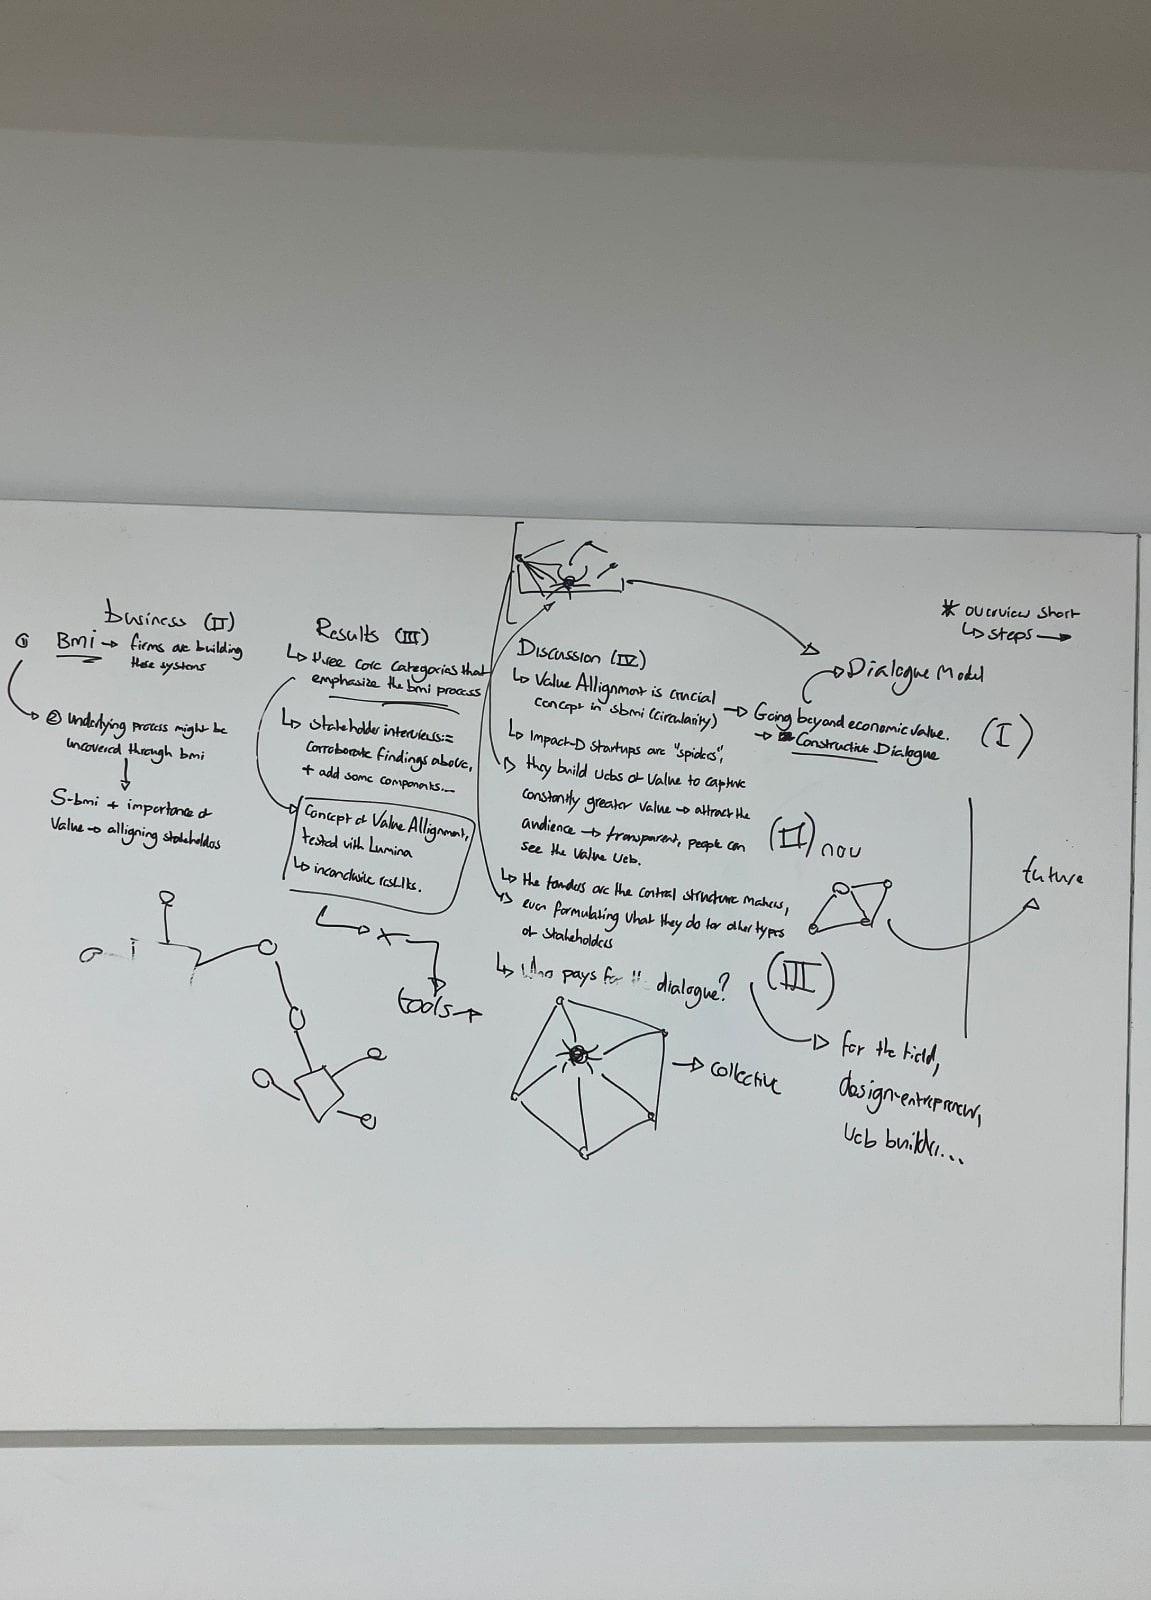 business (II)
① BMi → firms are building
these systems
② Underlying process might be
uncovered through bmi
S-bmi + importance of
Value → alligning stakeholders
Results (III)
↳ three core categories that
emphasize the bmi process
↳ stakeholder interviews:=
corroborate findings above,
+ add some components...
Concept of Value Allignment,
tested with Lumina
↳ inconclusive results.
tools →
Discussion (IV)
↳ Value Allignment is crucial
concept in sbmi (circularity)
↳ Impact-D startups are "spiders",
they build webs of value to capture
constantly greater value → attract the
audience → transparent, people can
see the value web.
↳ the founders are the central structure makers,
even formulating what they do for other types
of stakeholders
↳ Who pays for dialogue?
→ collective
* overview short
↳ steps →
Dialogue Model
→ Going beyond economic value.
→ Constructive Dialogue
(I)
(II) now
future
(III)
for the field,
design-entrepreneur,
web builder...